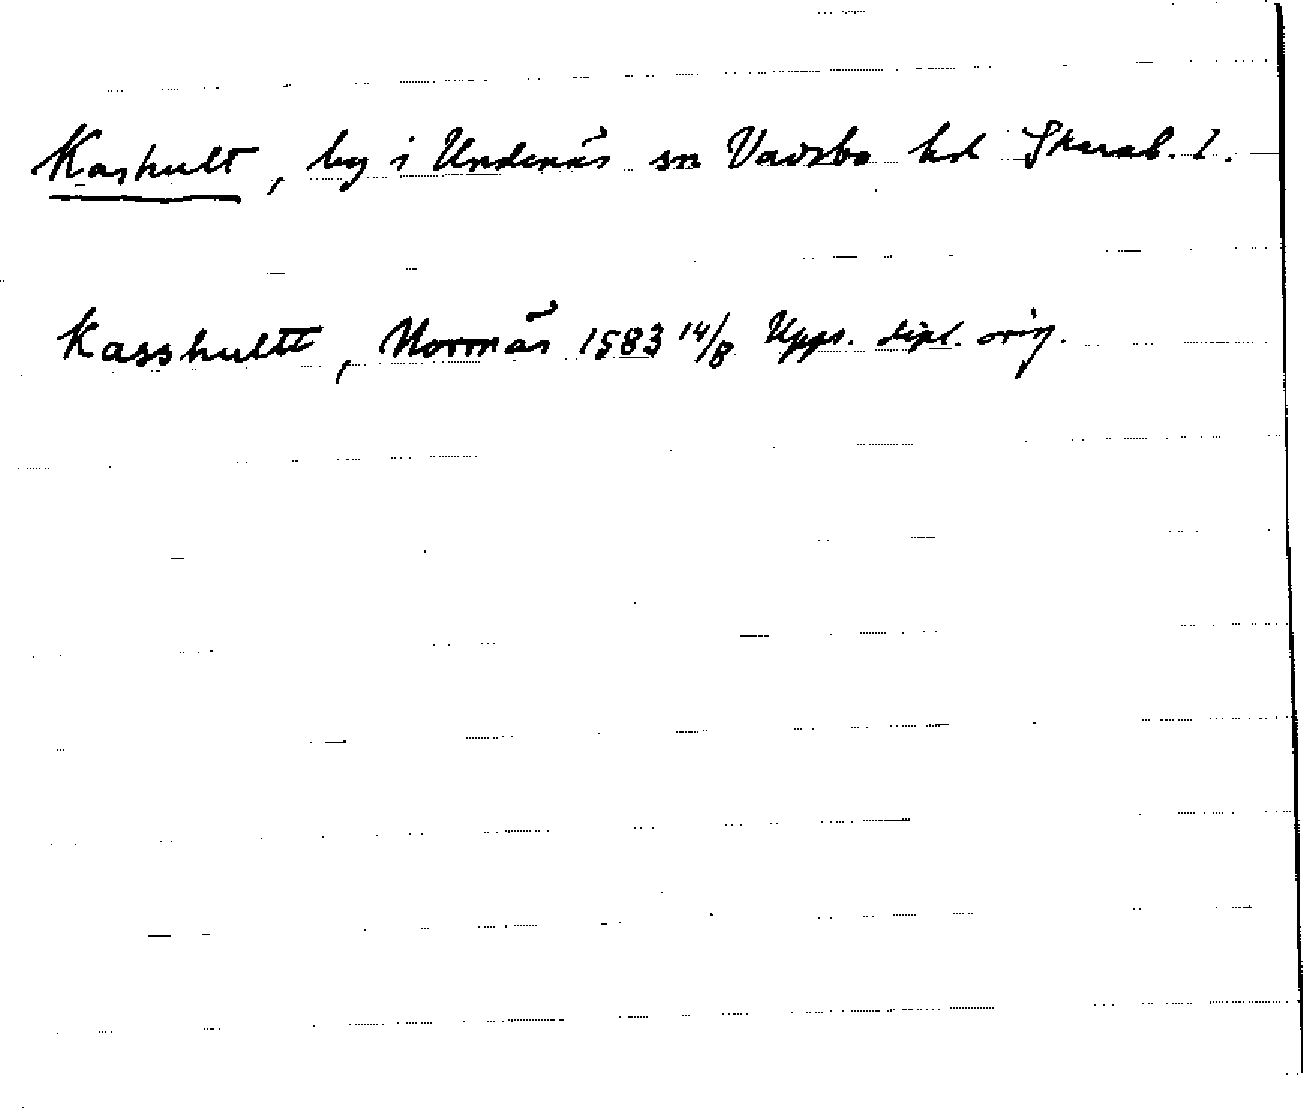 Kashult, by i Undenäs sn Vadsbo hd Skarab. l.
Kasshultt, Norrnäs 1583 14/8 Upps. dipl. orig.